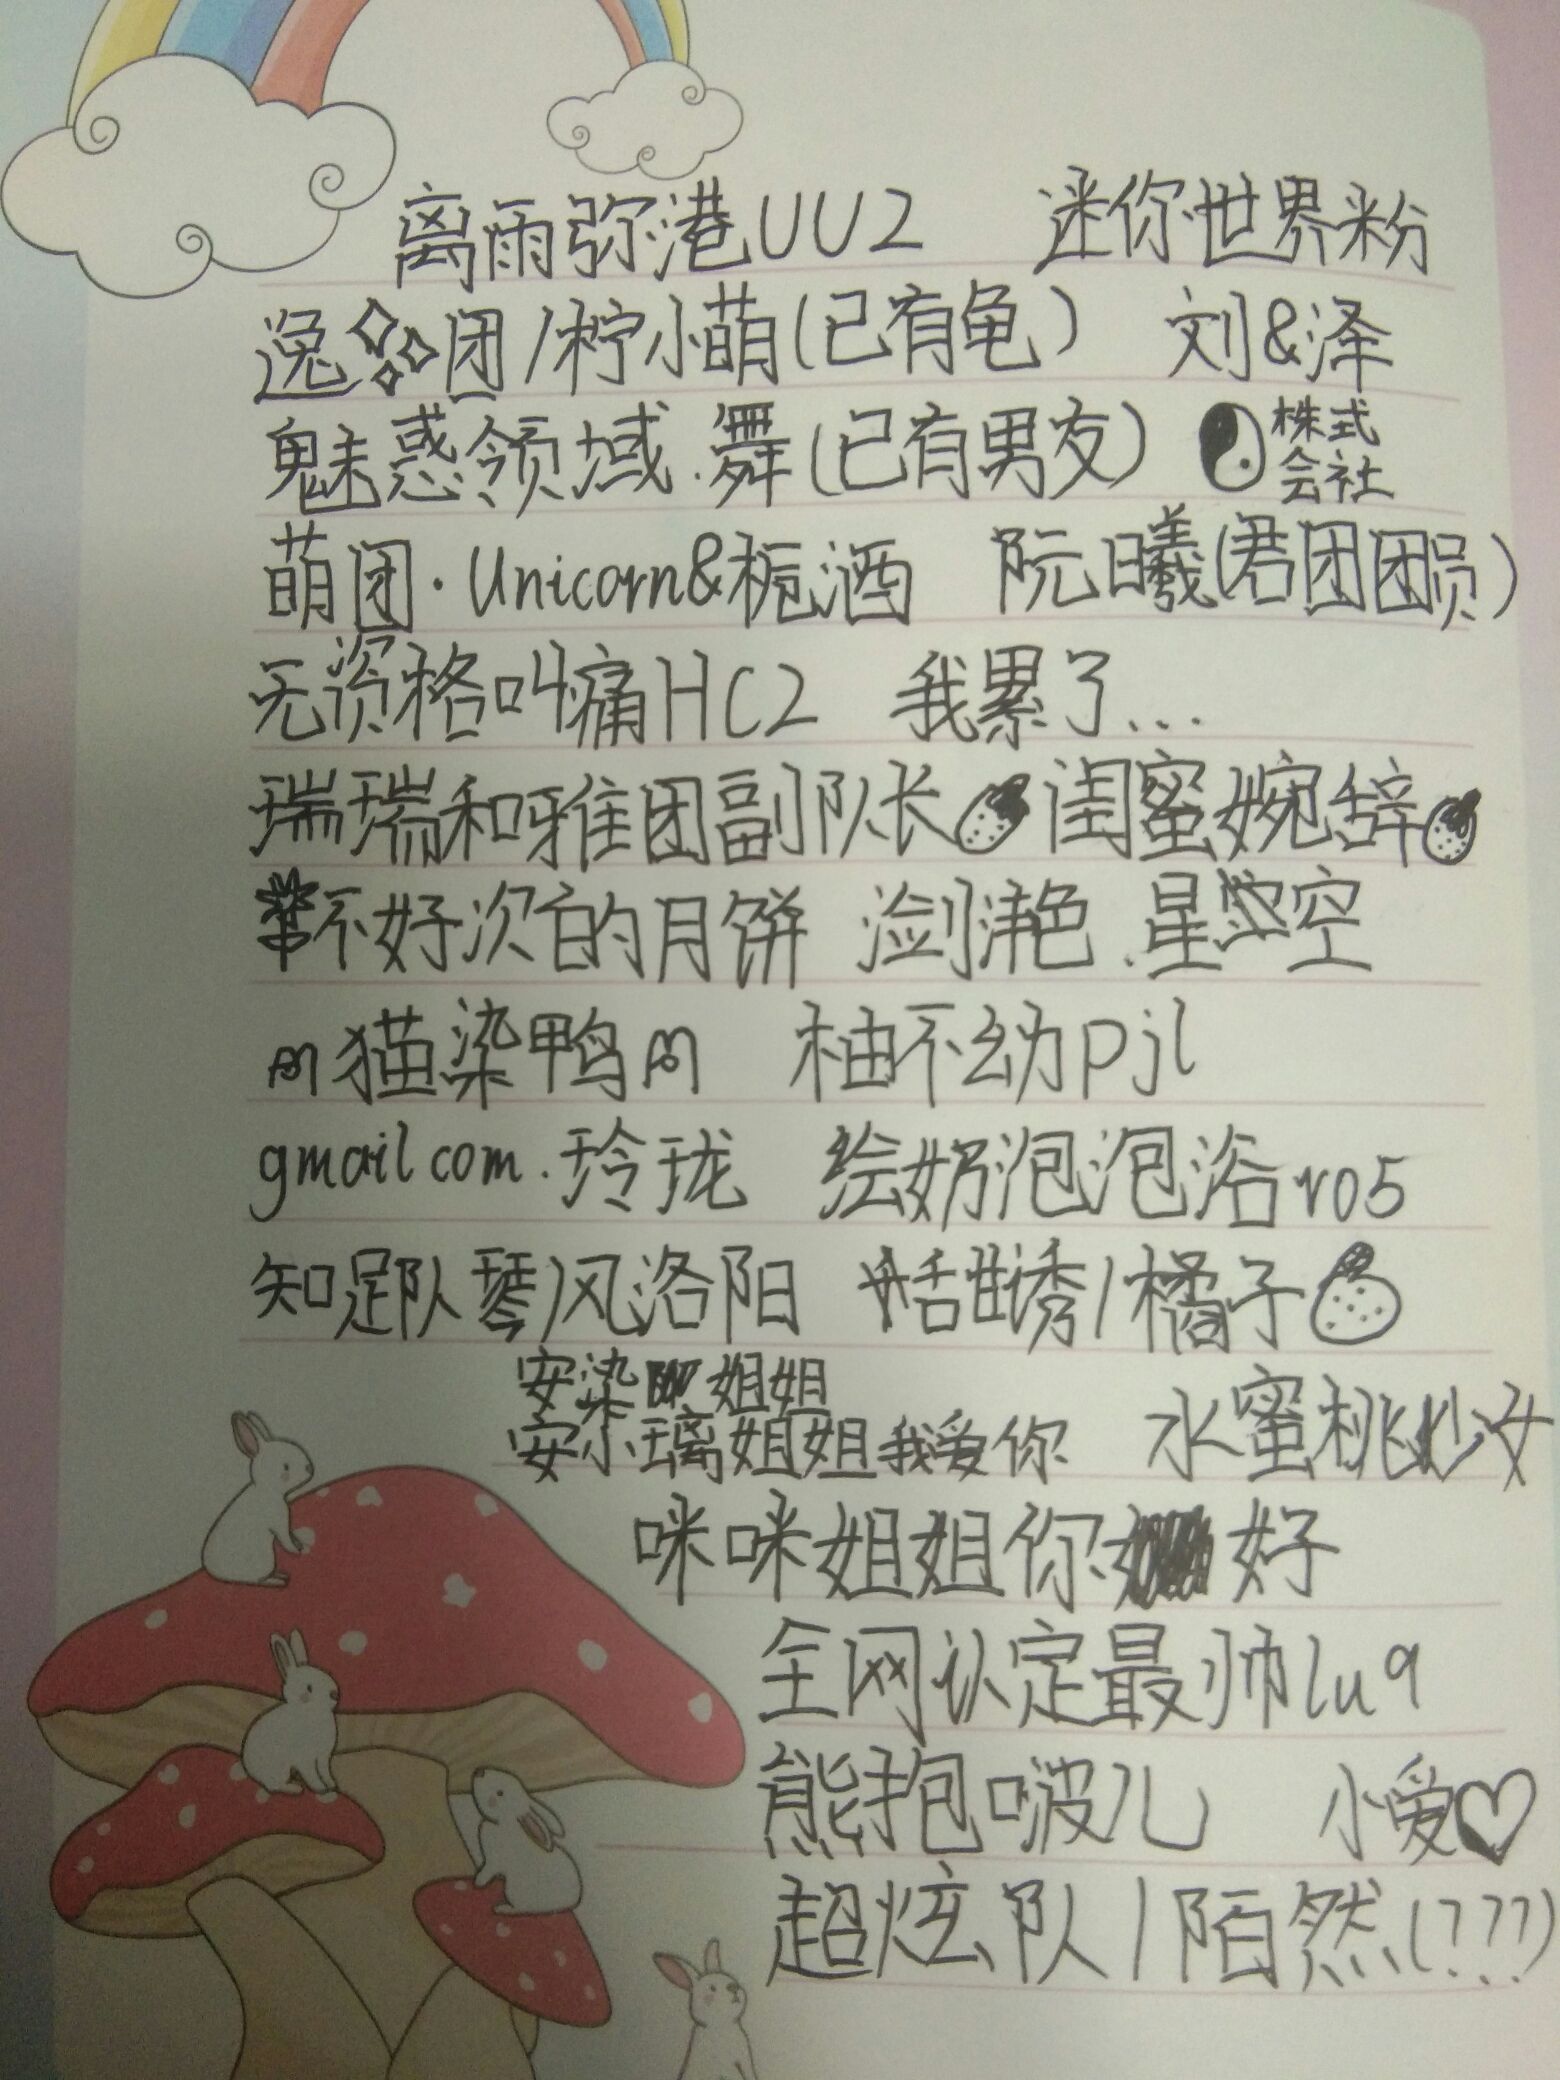 离雨弥港UU2 迷你世界粉
逸团/柠小萌(已有龟) 刘&泽
魅惑领域.舞(已有男友) 株式
会社
萌团·Unicorn&栀酒 阮曦(君团团员)
无资格叫痛HC2 我累了...
瑞瑞和雅团副队长 闺蜜婉辞
不好次的月饼 .星空
m猫染鸭m 柚不幼pjl
gmail com.玲珑 绘奶泡泡浴ro5
知足队琴/风洛阳 甜诱/橘子
安染姐姐
安小璃姐姐我爱你 水蜜桃少女
咪咪姐姐你好
全网认定最帅lu9
熊抱啵儿 小爱♡
超炫队/陌然(???)